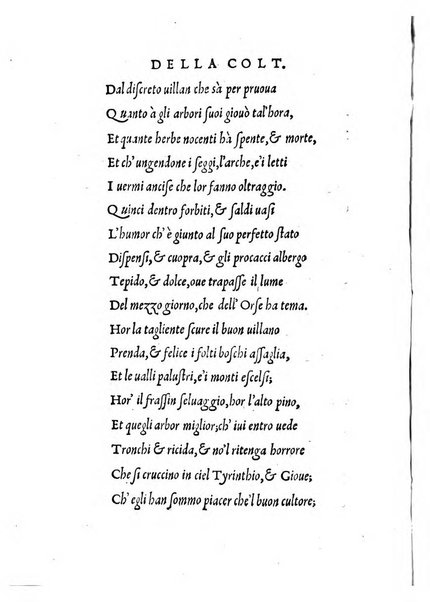 DELLA COLT.
Dal diſcreto uillan che sà per pruoua
Quanto à gli arbori ſuoi giouò tal'hora,
Et quante herbe nocenti hà ſpente, & morte,
Et ch'ungendone i ſeggi, l'arche, e'i letti
I uermi anciſe che lor fanno oltraggio.
Quinci dentro forbiti, & ſaldi uaſi
L'humor ch'è giunto al ſuo perfetto ſtato
Diſpenſi, & cuopra, & gli procacci albergo
Tepido, & dolce, oue trapaſſe il lume
Del mezzo giorno, che dell'Orſe ha tema.
Hor la tagliente ſcure il buon uillano
Prenda, & felice i folti boſchi aſſaglia,
Et le ualli paluſtri, e'i monti eſcelſi;
Hor' il fraſſin ſeluaggio, hor l'alto pino,
Et quegli arbor miglior; ch'iui entro uede
Tronchi & ricida, & no'l ritenga horrore
Che ſi cruccino in ciel Tyrinthio, & Gioue;
Ch'egli han ſommo piacer che'l buon cultore;